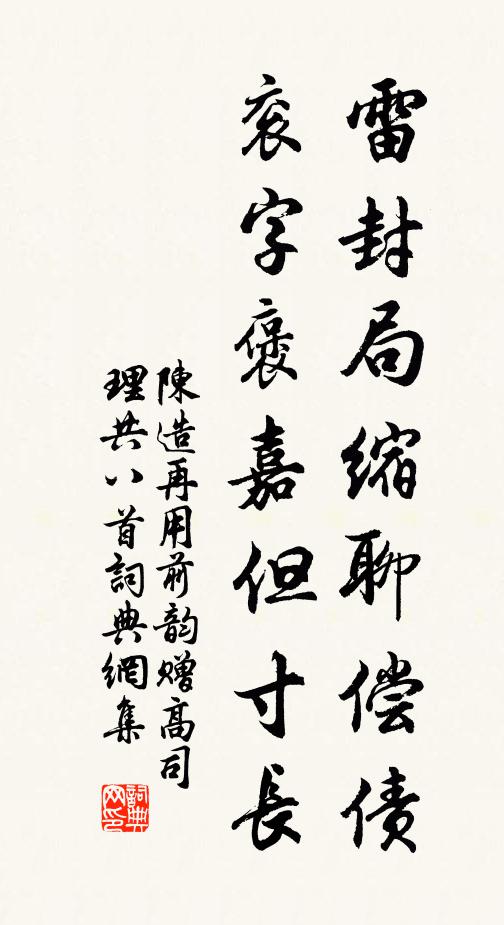 雷封局缩聊偿债
衮字褒嘉但寸長
陳造再用前韵赠高司
理共八首詞典網集
詞典网印